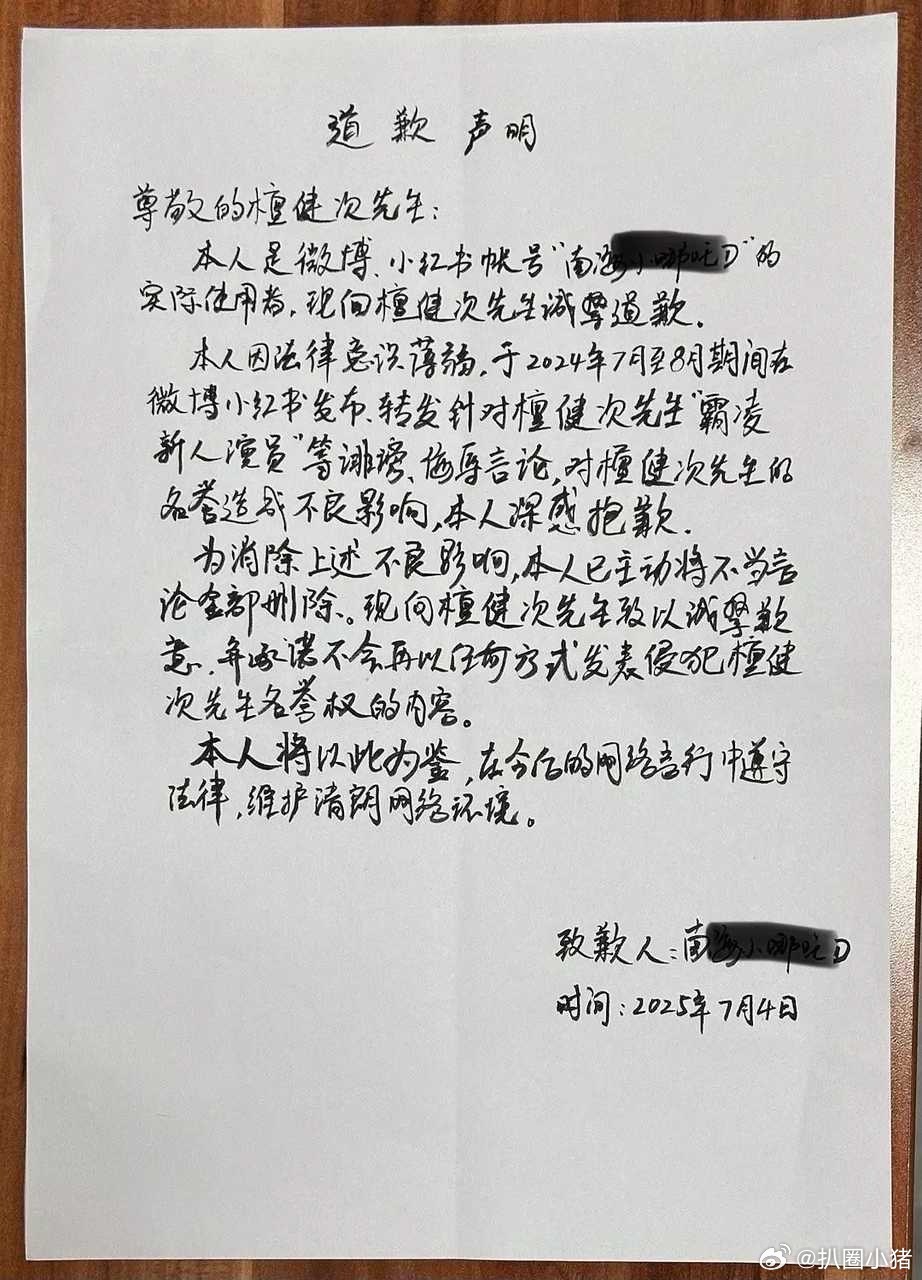 道歉声明
尊敬的檀健次先生：
本人是微博、小红书帐号“南 D”的
实际使用者，现向檀健次先生诚挚道歉。
本人因法律意识薄弱，于2024年7月至8月期间在
微博小红书发布、转发针对檀健次先生“霸凌
新人演员”等诽谤、侮辱言论，对檀健次先生的
名誉造成不良影响，本人深感抱歉。
为消除上述不良影响，本人已主动将不当言
论全部删除。现向檀健次先生致以诚挚歉
意，并承诺不会再以任何方式发表侵犯檀健
次先生名誉权的内容。
本人将以此为鉴，在今后的网络言行中遵守
法律，维护清朗网络环境。
致歉人：南 D
时间：2025年7月4日
@扒圈小猪